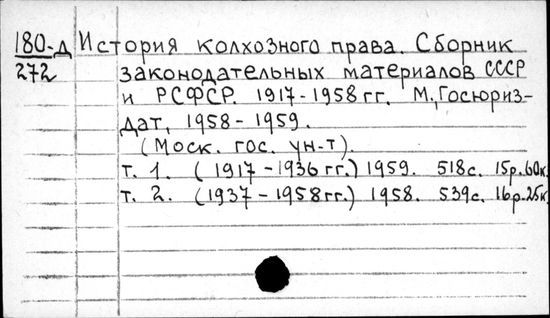 180-д История колхозного права. Сборник
272 законодательных материалов СССР
и РСФСР. 1917-1958 гг. М., Госюриз-
дат, 1958-1959.
(Моск. гос. ун-т).
т. 1. (1917-1936 гг.) 1959. 518с. 15р.60к.
т. 2. (1937-1958гг.) 1958. 539с. 16р.25к.